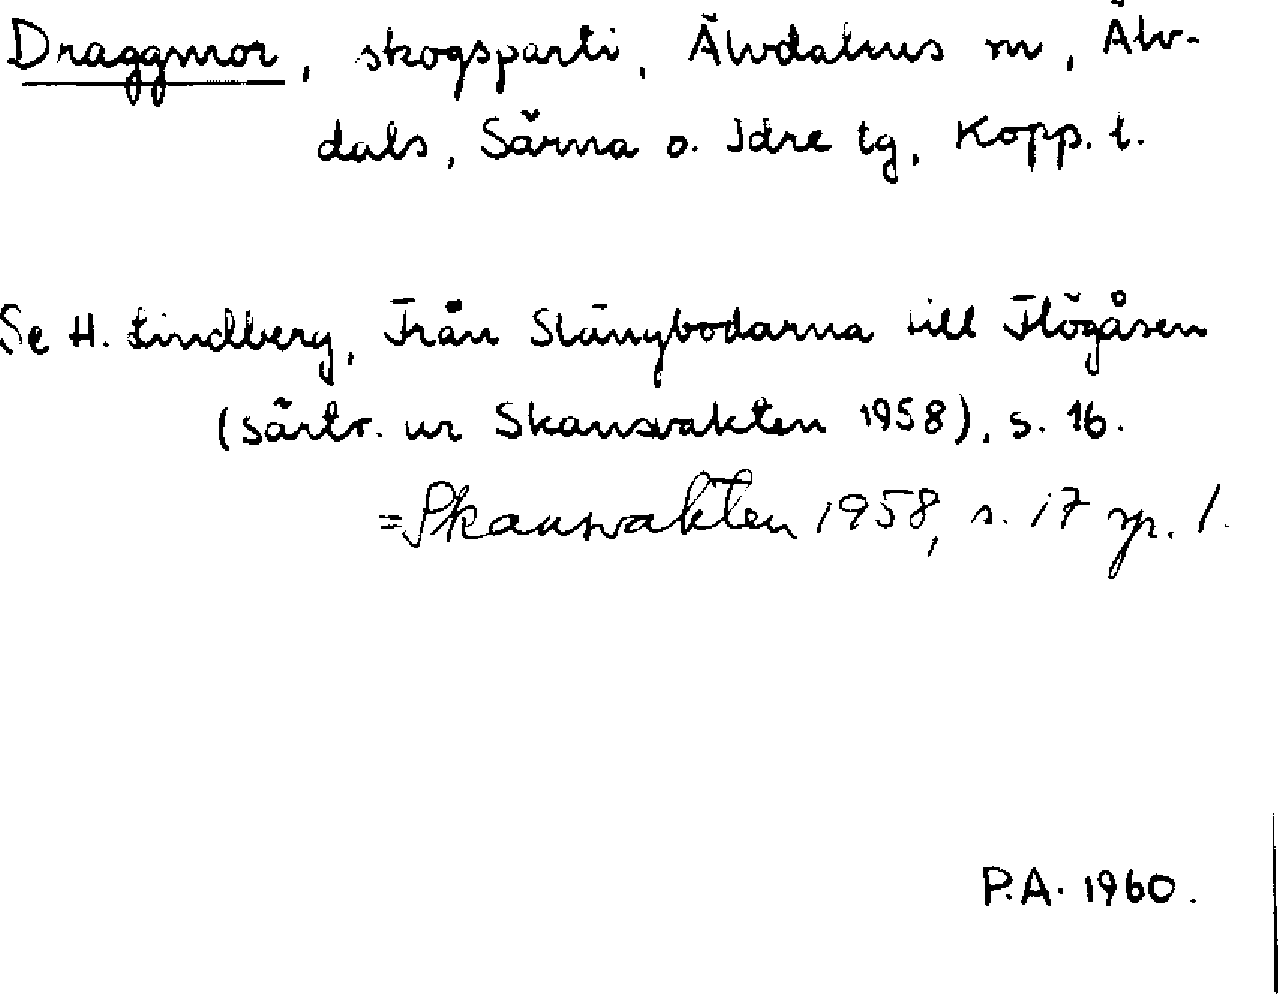 Draggmor, skogsparti, Älvdalens sn, Älv-
dals, Särna o. Idre tg, Kopp. l.
Se H. Lindberg, Från Stängbodarna till Flögåsen
(särtr. ur Skansvakten 1958), s. 16.
= Skansvakten 1958, s. 17 sp. 1.
P.A. 1960.